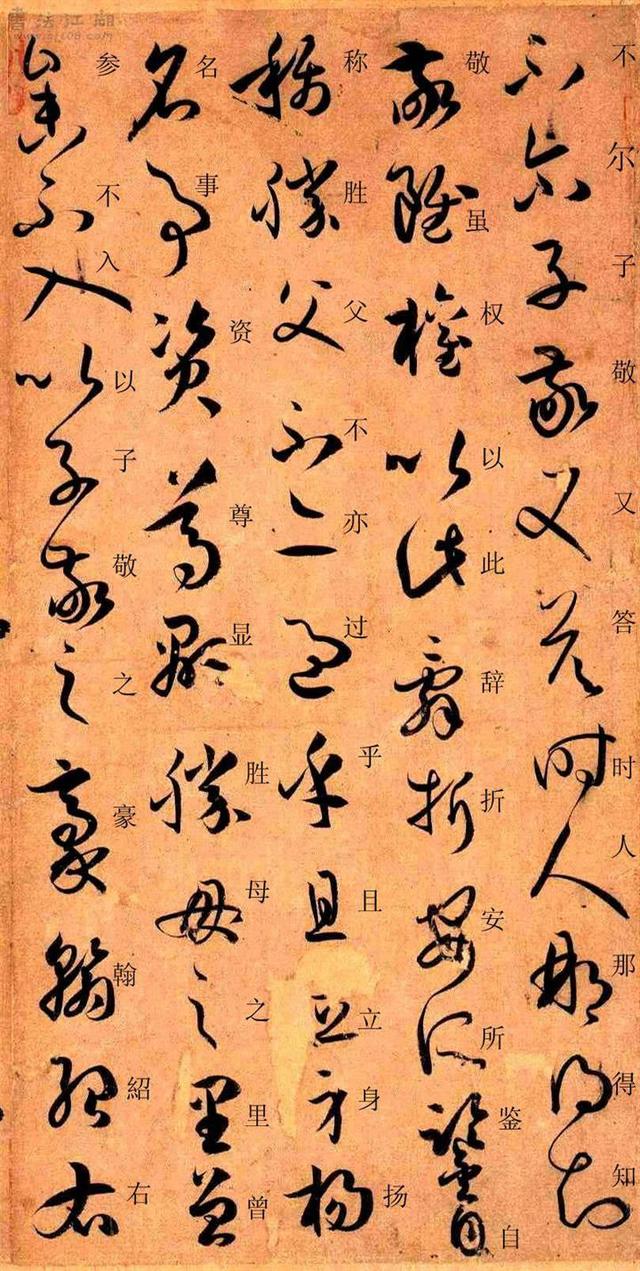 不尔子敬又答时人那得知
敬虽权以此辞折安所鉴自
称胜父不亦过乎且立身扬
名事资尊显胜母之里曾
参不入以子敬之豪翰紹右
書法江湖